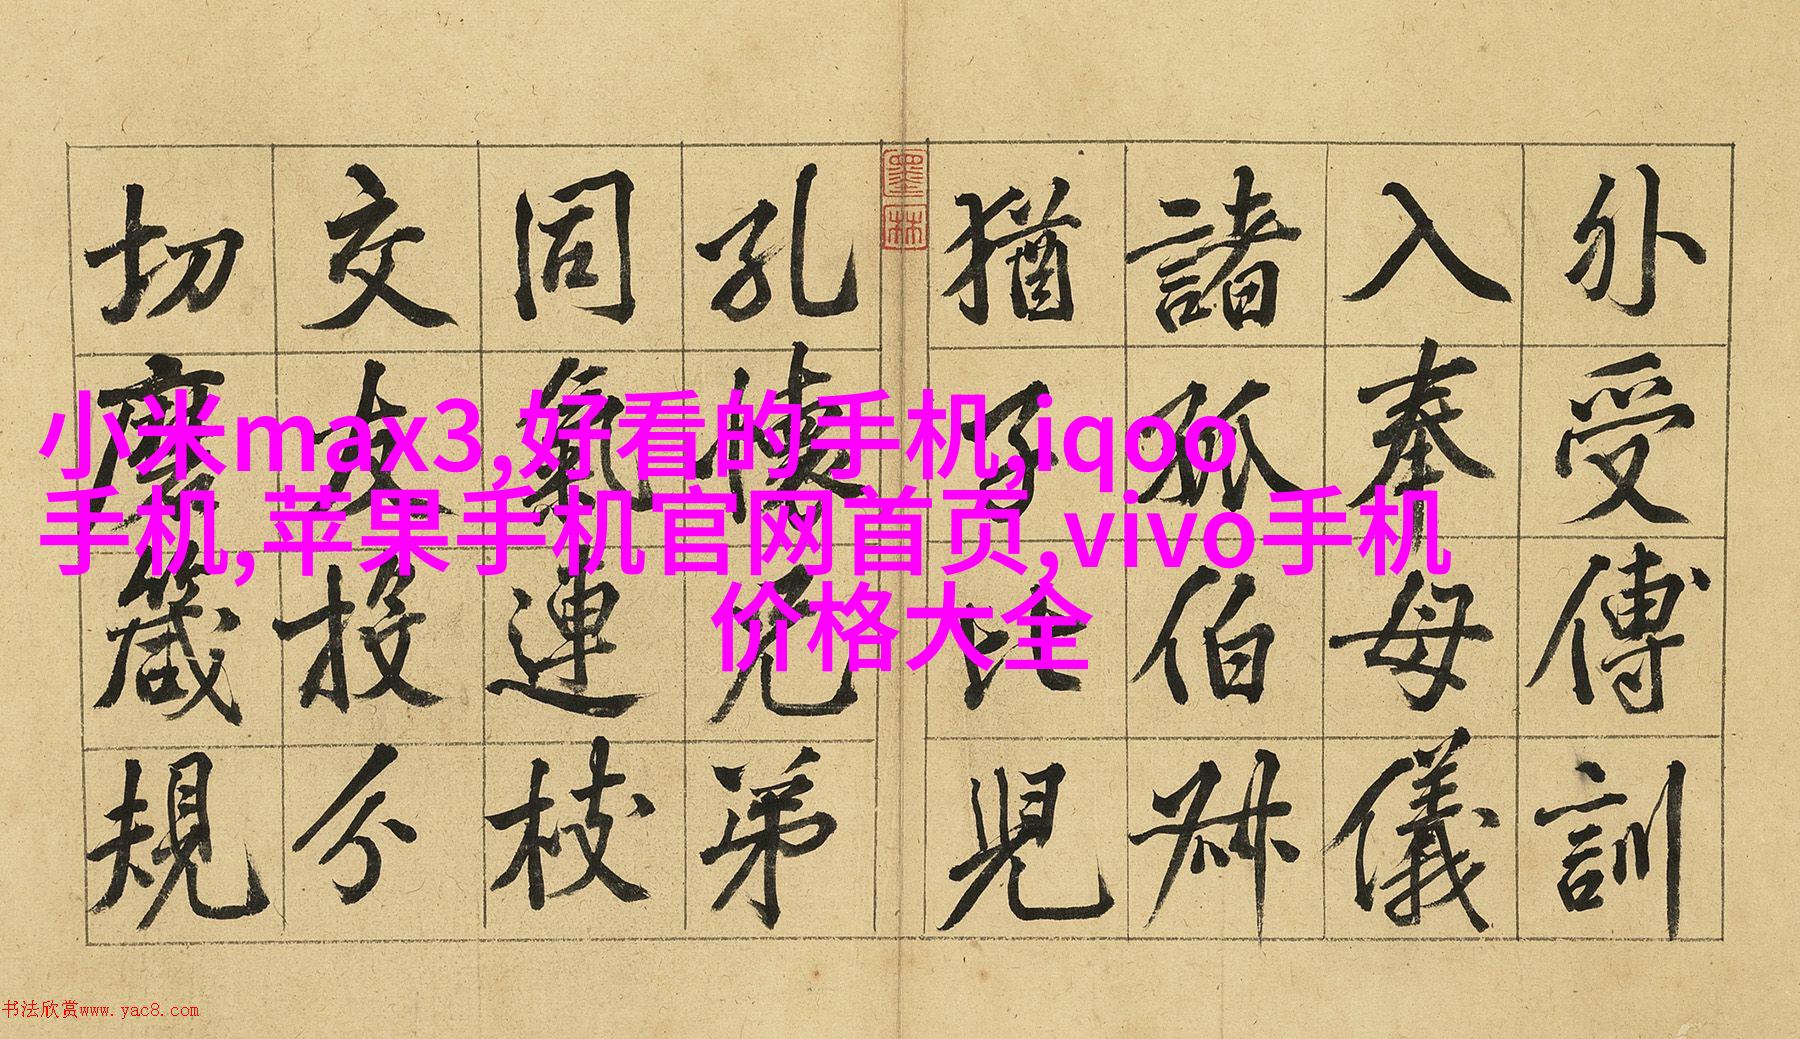 外受傅訓
入奉母儀
諸姑伯叔
猶子比兒
孔懷兄弟
同氣連枝
交友投分
切磨箴規
墨林
小米max3,好看的手机,iqoo
手机,苹果手机官网首页,vivo手机
价格大全
书法欣赏www.yac8.com